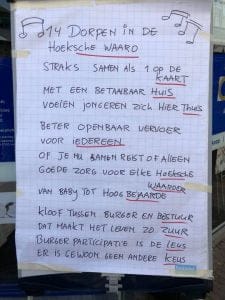 14 DORPEN IN DE
HOEKSCHE WAARD
STRAKS SAMEN ALS 1 OP DE
KAART
MET EEN BETAALBAAR HUIS
VOELEN JONGEREN ZICH HIER THUIS
BETER OPENBAAR VERVOER
VOOR IEDEREEN
OF JE NU SAMEN REIST OF ALLEEN
GOEDE ZORG VOOR ELKE HOEKSCHE
WAARDER
VAN BABY TOT HOOG BEJAARDE
KLOOF TUSSEN BURGER EN BESTUUR
DAT MAAKT HET LEVEN ZO ZUUR
BURGER PARTICIPATIE IS DE LEUS
ER IS GEWOON GEEN ANDERE KEUS